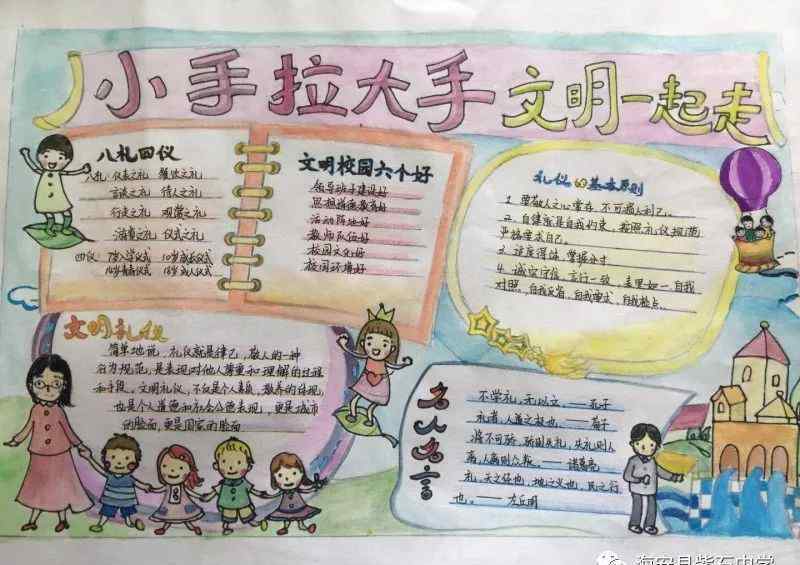 小手拉大手 文明一起走
八礼四仪
八礼 仪表之礼 餐饮之礼
言谈之礼 待人之礼
行走之礼 观赏之礼
游览之礼 仪式之礼
四仪 7岁入学仪式 10岁成长仪式
14岁青春仪式 18岁成人仪式
文明校园六个好
领导班子建设好
思想道德教育好
活动阵地好
教师队伍好
校园文化好
校园环境好
礼仪的基本原则
1. 要敬人之心常存,不可损人利己。
2. 自律就是自我约束,按照礼仪规范
严格要求自己。
3. 适度得体,掌握分寸
4. 诚实守信,言行一致,表里如一 自我
对照,自我反省,自我要求,自我检点。
文明礼仪
简单地说,礼仪就是律己,敬人的一种
行为规范,是表现对他人尊重和理解的过程
和手段。文明礼仪,不仅是个人素质,教养的体现,
也是个人道德和社会公德表现,更是城市
的脸面,更是国家的脸面
名人名言
不学礼,无以立。——孔子
礼者,人道之极也。——荀子
将不可骄,骄则失礼,失礼则人
离,人离则众叛。——诸葛亮
礼,天之经也,地之义也,民之行
也。——左丘明
海安县紫石中学